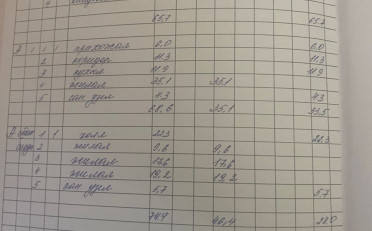 65,7 65,7
А 1 1 1 прихожая 6,0 6,0
2 коридор 11,3 11,3
3 кухня 11,9 11,9
4 жилая 35,1 35,1
5 сан. узел 4,3 4,3
68,6 35,1 33,5
1 1 холл 22,3 22,3
2 жилая 9,6 9,6
3 жилая 17,6 17,6
4 жилая 19,2 19,2
5 сан. узел 5,7 5,7
74,4 46,4 28,0